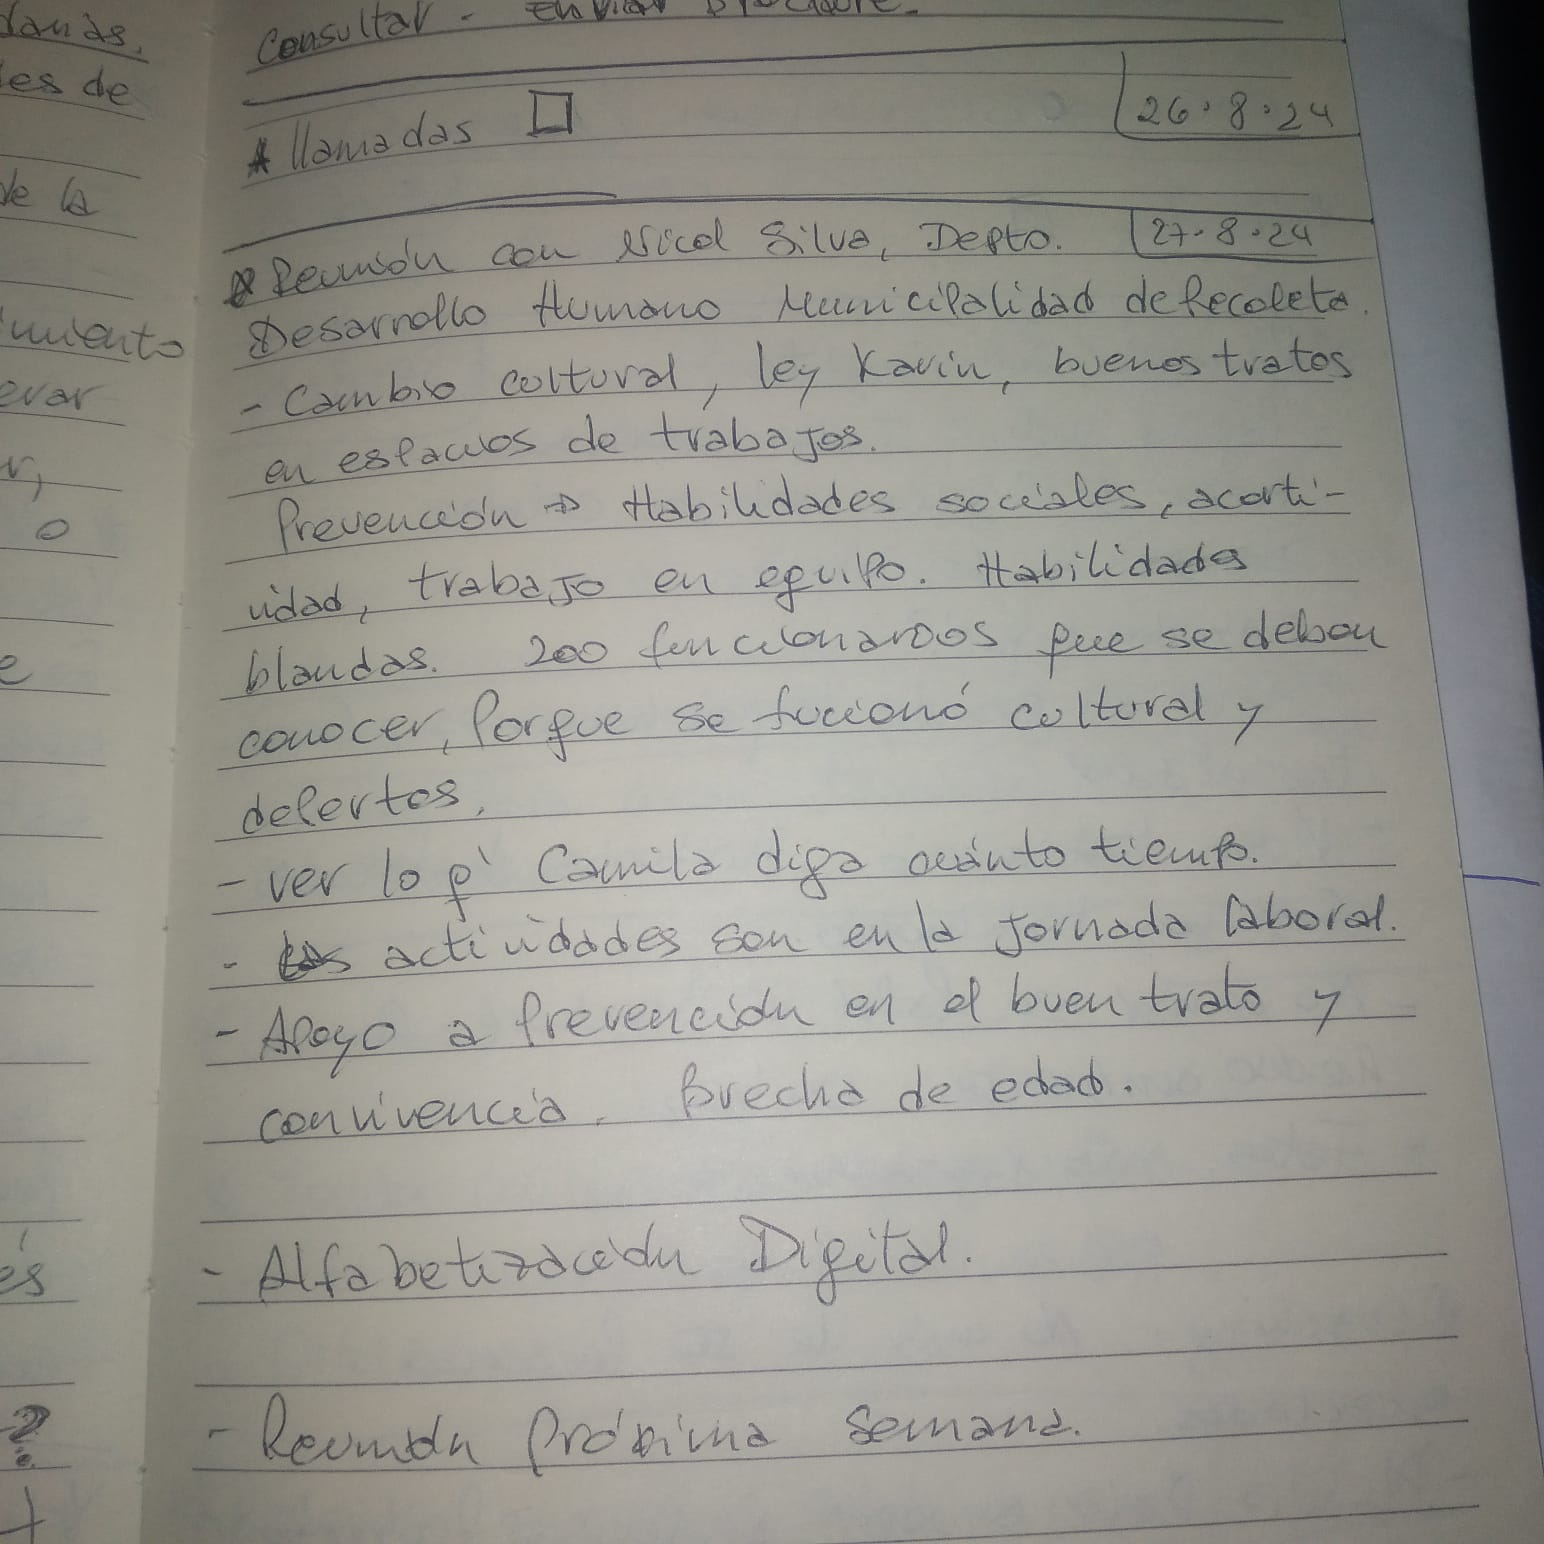 lanas.
les de
de la
imiento
evar
r,
o
e
és
?
Consultar - enviar brochure.
26.8.24
* llamadas □
27.8.24
* Reunión con Nicol Silva, Depto.
Desarrollo Humano Municipalidad de Recoleta.
- Cambio cultural, ley Karin, buenos tratos
en espacios de trabajos.
Prevención → Habilidades sociales, acerti-
vidad, trabajo en equipo. Habilidades
blandas. 200 funcionaroos que se deben
conocer, Porque se fucionó cultural y
deportes.
- ver lo q' Camila diga cuánto tiempo.
- las actividades son en la Jornada laboral.
- Apoyo a prevención en el buen trato y
convivencia. Brecha de edad.
- Alfabetización Digital.
- Reunión Próxima Semana.